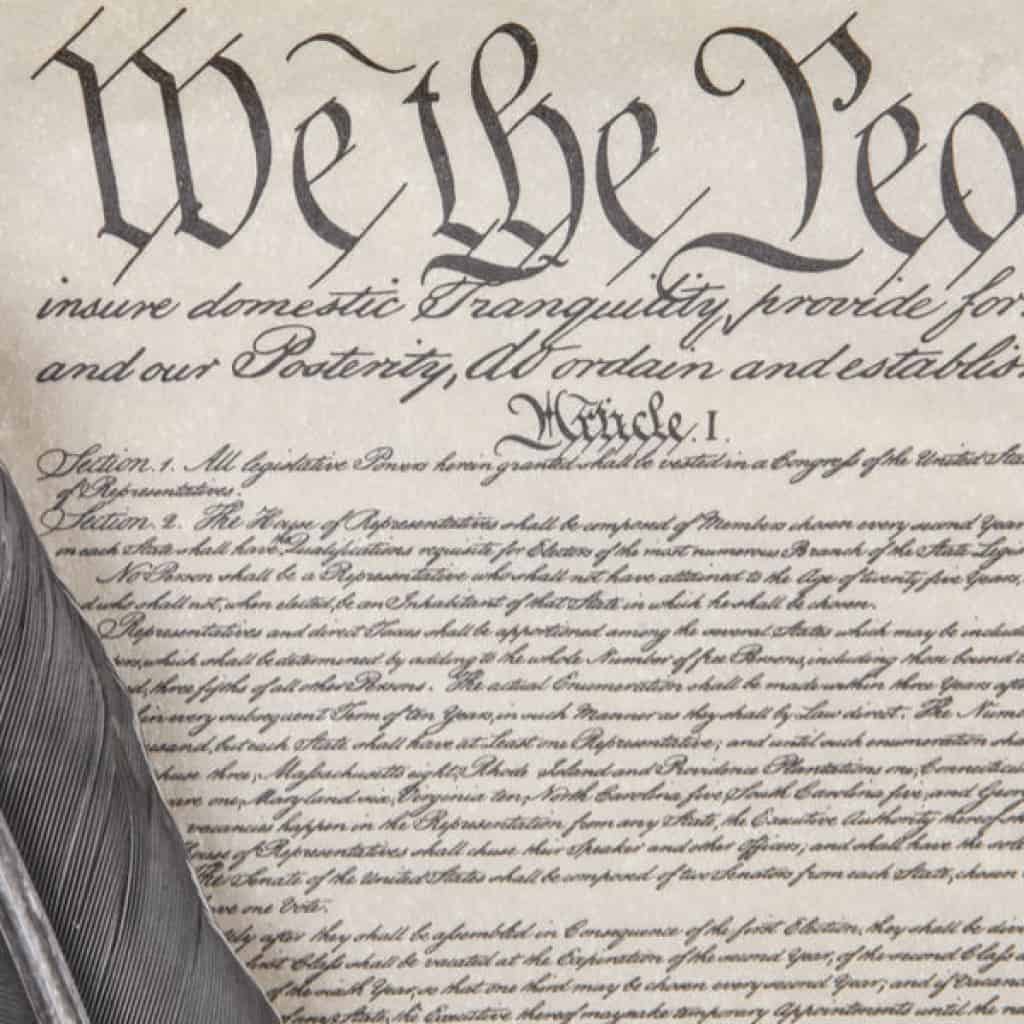 We the Peo
insure domestic Tranquility, provide for
and our Posterity, do ordain and establis
Article. I.
Section. 1. All legislative Powers herein granted shall be vested in a Congress of the United Sta
of Representatives.
Section. 2. The House of Representatives shall be composed of Members chosen every second Year
in each State shall have the Qualifications requisite for Electors of the most numerous Branch of the State Legis
No Person shall be a Representative who shall not have attained to the Age of twenty five Years,
d who shall not, when elected, be an Inhabitant of that State in which he shall be chosen.
Representatives and direct Taxes shall be apportioned among the several States which may be includ
which shall be determined by adding to the whole Number of free Persons, including those bound
d, three fifths of all other Persons. The actual Enumeration shall be made within three Years afte
in every subsequent Term of ten Years, in such Manner as they shall by Law direct. The Num
usand, but each State shall have at Least one Representative; and until such enumeration sha
huse three, Massachusetts eight, Rhode Island and Providence Plantations one, Connecticu
are one, Maryland six, Virginia ten, North Carolina five, South Carolina five, and Geor
vacancies happen in the Representation from any State, the Executive Authority thereof
House of Representatives shall chuse their Speaker and other Officers; and shall have the sole
The Senate of the United States shall be composed of two Senators from each State, chosen
have one Vote.
tely after they shall be assembled in Consequence of the first Election, they shall be div
first Class shall be vacated at the Expiration of the second Year, of the second Class
of the sixth Year, so that one third may be chosen every second Year; and if Vacan
of any State, the Executive thereof may make temporary Appointments until the